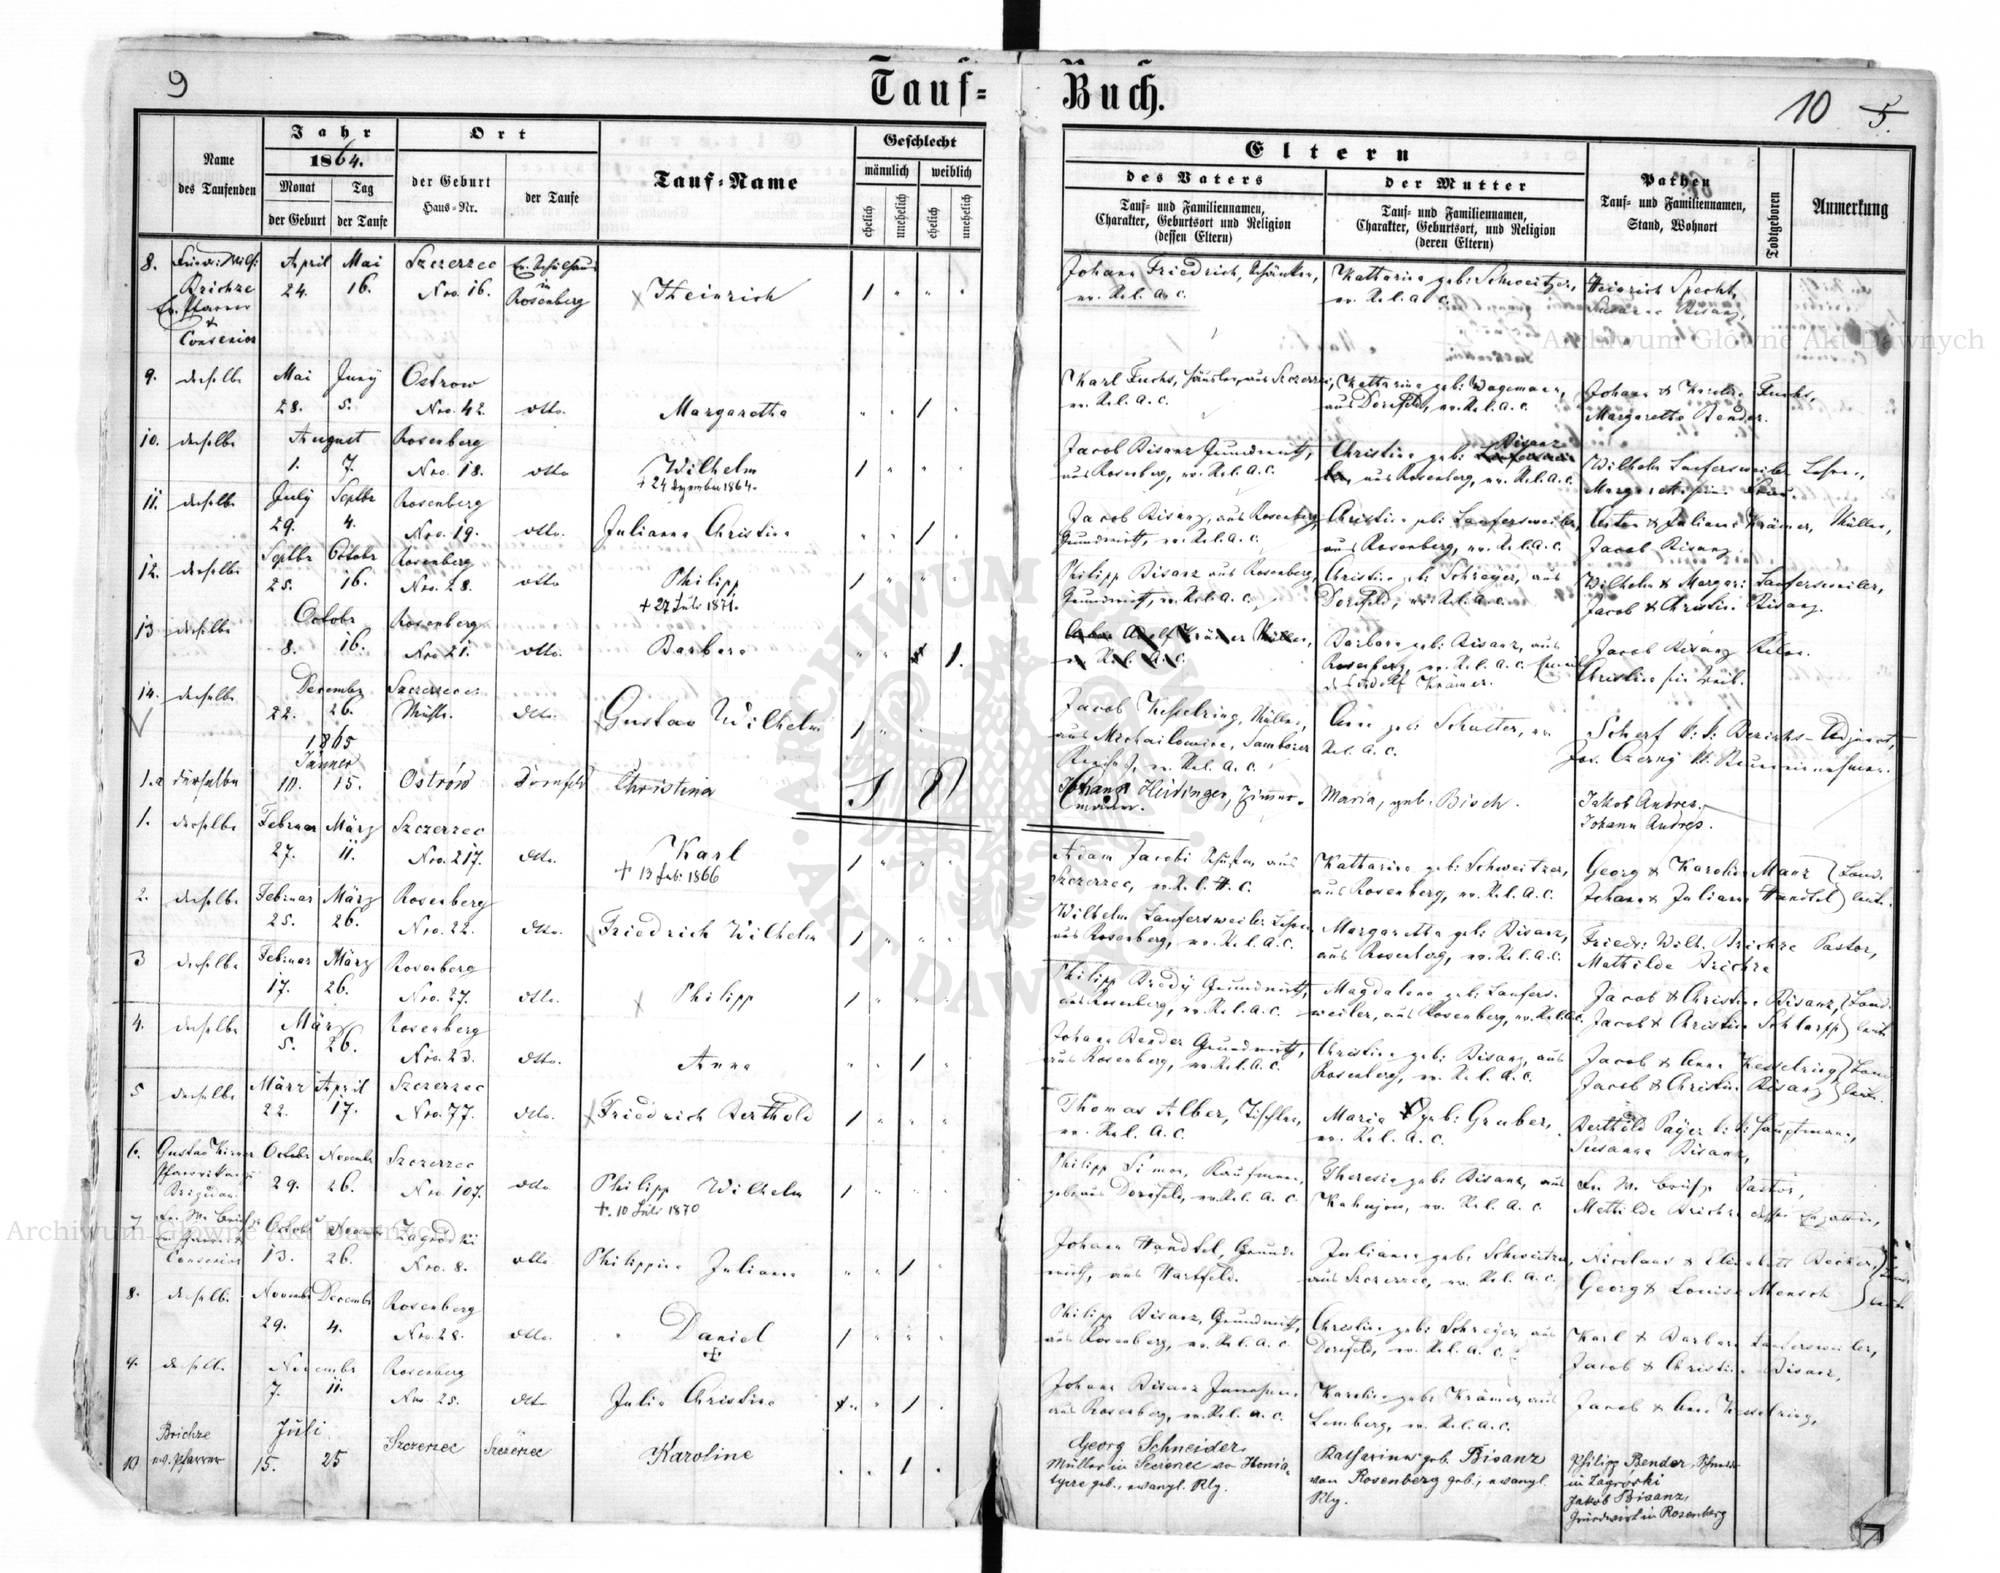 9
Tauf=
Buch.
10 5.
Name
des Taufenden
Jahr
1864.
Monat
Tag
der Geburt
der Taufe
Ort
der Geburt
Haus=Nr.
der Taufe
Tauf=Name
Geschlecht
männlich
weiblich
ehelich
unehelich
ehelich
unehelich
Eltern
des Vaters
Tauf= und Familiennamen,
Charakter, Geburtsort und Religion
(dessen Eltern)
der Mutter
Tauf= und Familiennamen,
Charakter, Geburtsort, und Religion
(deren Eltern)
Pathen
Tauf= und Familiennamen,
Stand, Wohnort
Todtgeboren
Anmerkung
8. April Mai Szczerzec
Brichze 24. 16. Nro. 16. in Rosenberg Heinrich 1
Ev. Pfarrer
&
Consenior
Johann Friedrich,
ev. Rel. A. C.
Katharina geb: Schweitzer,
ev. Rel. A. C.
Heinrich Specht,
Susanna Bisanz,
9. derselbe Mai Juny Ostrow
28. 5. Nro. 42. dtto. Margaretha 1
Karl Fuchs, Häusler, aus Szczerzec,
ev. Rel. A. C.
Katharina geb: Wagemann,
aus Dornfeld, ev. Rel. A. C.
Johann & Fuchs,
Margaretha Bender.
10. derselbe August Rosenberg
1. 7. Nro. 18. dtto Wilhelm 1
+ 24 Dezember 1864.
Jacob Bisanz Grundwirth,
aus Rosenberg, ev. Rel. A. C.
Christine geb: Bisanz
aus Rosenberg, ev. Rel. A. C.
Wilhelm Laufersweiler Lehrer,
Margaretha seine Frau.
11. derselbe July Septbr Rosenberg
29. 4. Nro. 19. dtto. Julianna Christina 1
Jacob Bisanz, aus Rosenberg,
Grundwirth, ev. Rel. A. C.
Christine geb: Laufersweiler,
aus Rosenberg, ev. Rel. A. C.
& Juliane Krämer, Müller,
Jacob Bisanz
12. derselbe Septbr Octobr Rosenberg
25. 16. Nro. 28. dtto Philipp 1
+ 27 Juli 1871.
Philipp Bisanz aus Rosenberg,
Grundwirth, ev. Rel. A. C.
Christine geb: Schreyer, aus
Dornfeld, ev. Rel. A. C.
Wilhelm & Margar: Laufersweiler,
Jacob & Christine Bisanz.
13 derselbe Octobr Rosenberg
8. 16. Nro 21. dtto. Barbara 1.
Adolf Krämer Müller,
ev. Rel. A. C.
Barbara geb: Bisanz, aus
Rosenberg, ev. Rel. A. C.
Adolf Krämer.
Jacob Bisanz
Christine sein Weib.
14. derselbe December Szczerzecer
22. 26. Mühle. dtto. Gustav Wilhelm 1
Jacob Kesselring, Müller,
aus Michailowice, Samborer
Kreises, ev. Rel. A. C.
Anna geb: Schuster, ev.
Rel. A. C.
Scherf k: k: Bezirks-Adjunct,
Jos. Czerny
1865
Jänner
1.a derselbe 10. 15. Ostrów Dornfeld Christina
Johann Heidinger, Zimmer-
mann.
Maria, geb. Bisch.
Jakob Andres.
Johann Andres.
1. derselbe Februar März Szczerzec
27. 11. Nro. 217. dtto. Karl 1
+ 13 Feb: 1866
Adam Jacobi Schuster aus
Szczerzec, ev. Rel. H. C.
Katharina geb: Schweitzer,
aus Rosenberg, ev. Rel. A. C.
Georg & Karoline Manz } Land-
Johann & Juliane Handtel } leute.
2. derselbe Februar März Rosenberg
25. 26. Nro. 22. dtto. Friedrich Wilhelm 1
Wilhelm Laufersweiler Lehrer
aus Rosenberg, ev. Rel. A. C.
Margaretha geb: Bisanz,
aus Rosenberg, ev. Rel. A. C.
Friedr: Wilh. Brichze Pastor,
Mathilde Brichze
3 derselbe Februar März Rosenberg
17. 26. Nro. 27. dtto. Philipp 1
Philipp Bredy Grundwirth,
aus Rosenberg, ev. Rel. A. C.
Magdalena geb: Laufers-
weiler, aus Rosenberg, ev. Rel. A. C.
Jacob & Christine Bisanz, } Land-
Jacob & Christine Schlarpp } leute
4. derselbe März Rosenberg
5. 26. Nro. 23. dtto. Anna 1
Johann Bender Grundwirth,
aus Rosenberg, ev. Rel. A. C.
Christine geb: Bisanz, aus
Rosenberg, ev. Rel. A. C.
Jacob & Anna Kesselring } Land-
Jacob & Christine Bisanz } leute.
5 derselbe März April Szczerzec
22. 17. Nro. 77. dtto. Friedrich Berthold 1
Thomas Alber, Tischler,
ev. Rel. A. C.
Maria geb: Gruber,
ev. Rel. A. C.
Berthold Payer k: k: Hauptmann,
Susanna Bisanz,
6. Gustav October November Szczerzec
29. 26. Nro. 107. dtto Philipp Wilhelm 1
+. 10 Juli 1870
Philipp Simon, Kaufmann,
geb. aus Dornfeld, ev. Rel. A. C.
Theresia geb: Bisanz, aus
ev. Rel. A. C.
Fr. W. Pastor,
Mathilde Brichze dessen Gattin,
7 Octobr Novemb Zagrodki
Consenior 13. 26. Nro. 8. dtto Philippine Juliane 1
Johann Handtel, Grund-
wirth, aus Hartfeld.
Juliane geb: Schweitzer,
aus Szczerzec, ev. Rel. A. C.
Nicolaus & Elisabeth Becker,
Georg & Louise Mensch
8. derselbe November December Rosenberg
29. 4. Nro. 28. dtto. Daniel 1
+
Philipp Bisanz, Grundwirth,
aus Rosenberg, ev. Rel. A. C.
Christine geb: Schreyer, aus
Dornfeld, ev. Rel. A. C.
Karl & Barbara Laufersweiler,
Jacob & Christine Bisanz,
9. derselbe November Rosenberg
7. 11. Nro. 25. dtto Julie Christine 1
Johann Bisanz
aus Rosenberg, ev. Rel. A. C.
Karoline geb: Krämer, aus
Lemberg, ev. Rel. A. C.
Jacob & Anna Kesselring,
Brichze Juli
10 ev. Pfarrer 15. 25 Szczerzec Szczerzec Karoline 1
Georg Schneider,
Müller in Szczerzec
geb., evangl. Rlg.
Katharina geb. Bisanz
von Rosenberg geb., evangl.
Rlg.
Philipp Bender,
in Zagrodki
Jakob Bisanz,
Grundwirth in Rosenberg
Archiwum Główne Akt Dawnych
Archiwum Główne Akt Dawnych
ARCHIWUM GŁÓWNE AKT DAWNYCH